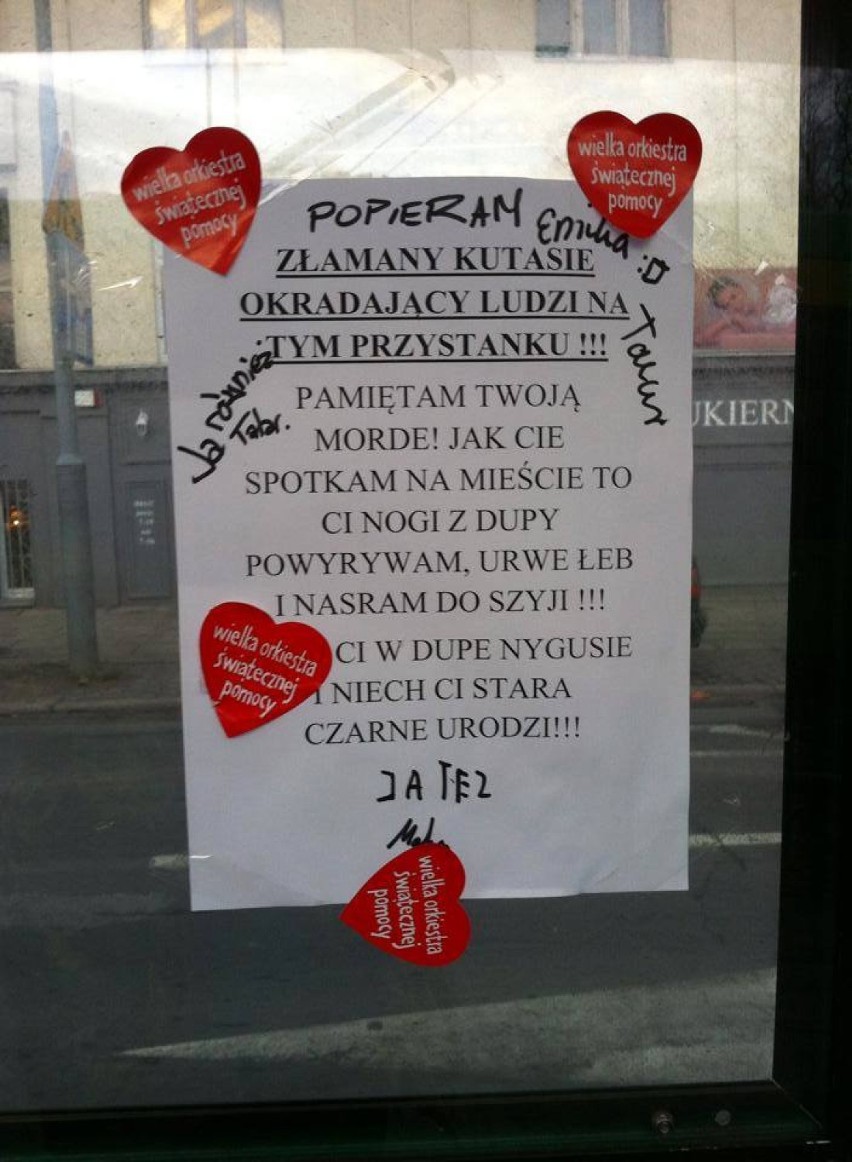 wielka orkiestra
świątecznej
pomocy
wielka orkiestra
świątecznej
pomocy
POPIERAM
Emilia :D
ZŁAMANY KUTASIE
OKRADAJĄCY LUDZI NA
TYM PRZYSTANKU !!!
Ja również
Tatar.
PAMIĘTAM TWOJĄ
MORDE! JAK CIE
SPOTKAM NA MIEŚCIE TO
CI NOGI Z DUPY
POWYRYWAM, URWE ŁEB
I NASRAM DO SZYJI !!!
CI W DUPE NYGUSIE
I NIECH CI STARA
CZARNE URODZI!!!
wielka orkiestra
świątecznej
pomocy
JA TEZ
wielka orkiestra
świątecznej
pomocy
UKIERN